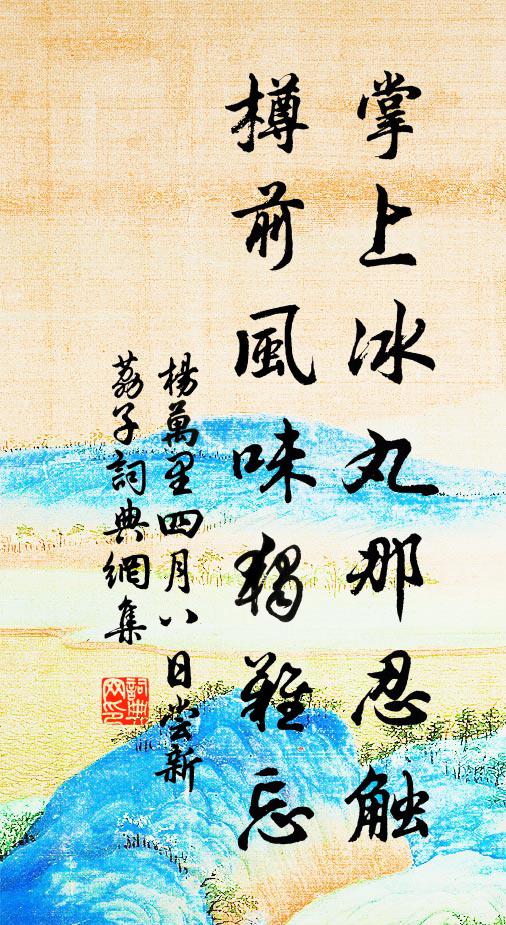 掌上冰丸那忍触
樽前風味獨難忘
楊萬里四月八日尝新
荔子詞典網集
詞典网印